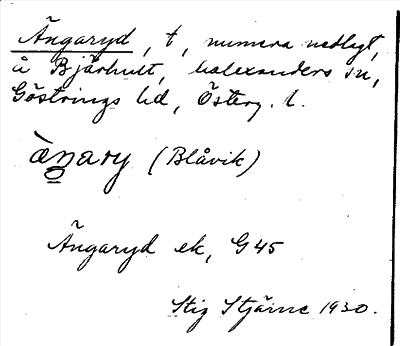 Ängaryd, t, numera nedlagt,
å Bjärhult, Malexanders sn,
Göstrings hd, Österg. l.
àŋary (Blåvik)
Ängaryd ek, G45
Stig Stjärne 1930.